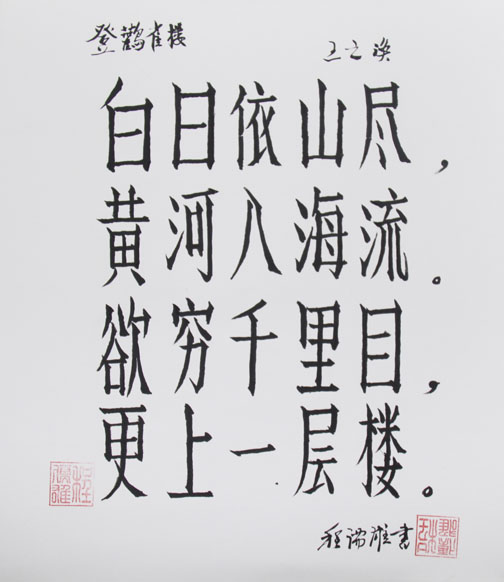 登鹳雀楼 王之涣
白日依山尽，
黄河入海流。
欲穷千里目，
更上一层楼。
程儒雄书